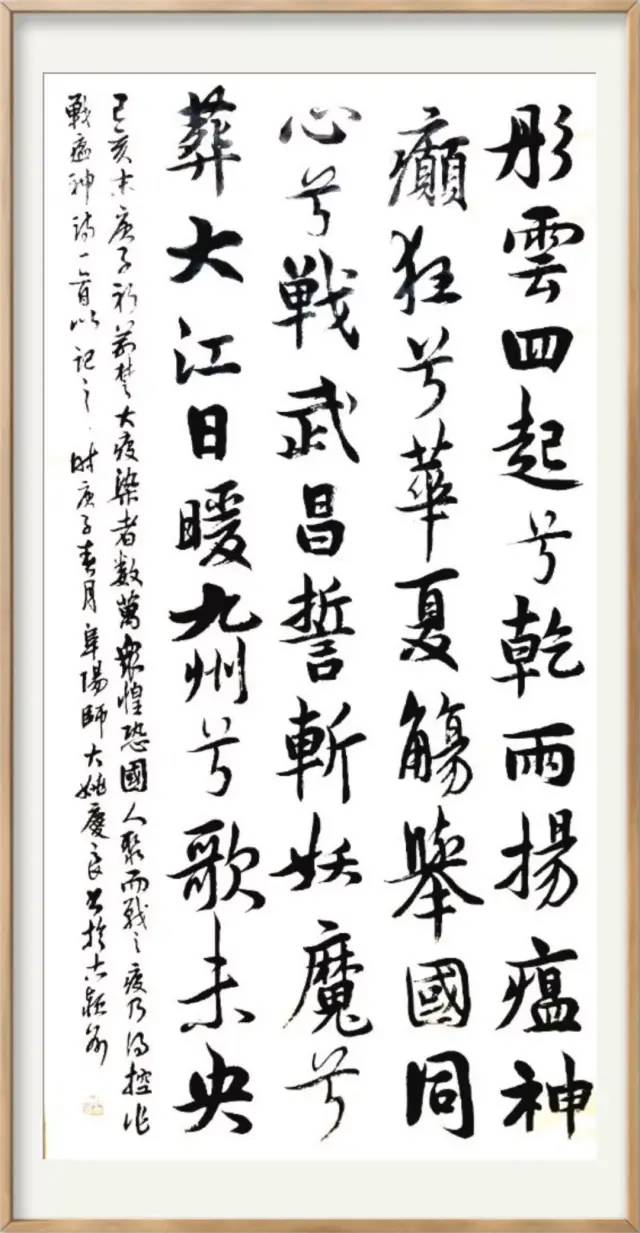 彤雲四起兮乾雨揚瘟神
癲狂兮華夏觴舉國同
心兮戰武昌誓斬妖魔兮
葬大江日暖九州兮歌未央
己亥末庚子初荊楚大疫染者数萬眾惶恐國人聚而戰之疫乃得控作
戰瘟神詩一首以記之时庚子春月阜陽師大姚慶良书於古穎